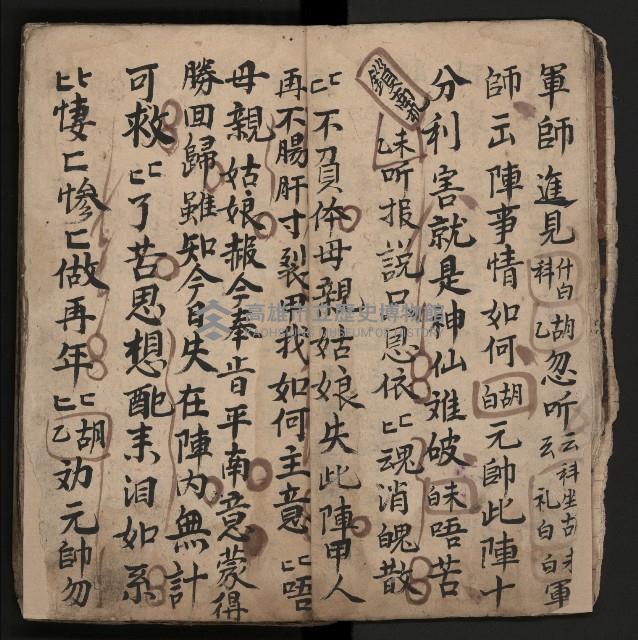 軍師進見 科 什白 乙 胡 忽听 云 科坐胡末 云 礼白白 軍
師云陣事情如何 白胡 元帥此陣十
分利害就是神仙难破 白末 唔苦
鎖南
乙末 听报説只息依匕魂消魄散
匕不頁体母親姑娘失此陣甲人
再不腸肝寸裂甲我如何主意匕唔
母親姑娘报今奉旨平南意蒙得
勝回歸雖知今日失在陣内無計
可救匕了苦思想配来泪如系
匕悽匕惨匕做再年匕 乙胡 劝元帥勿
高雄市立歷史博物館
KAOHSIUNG MUSEUM OF HISTORY